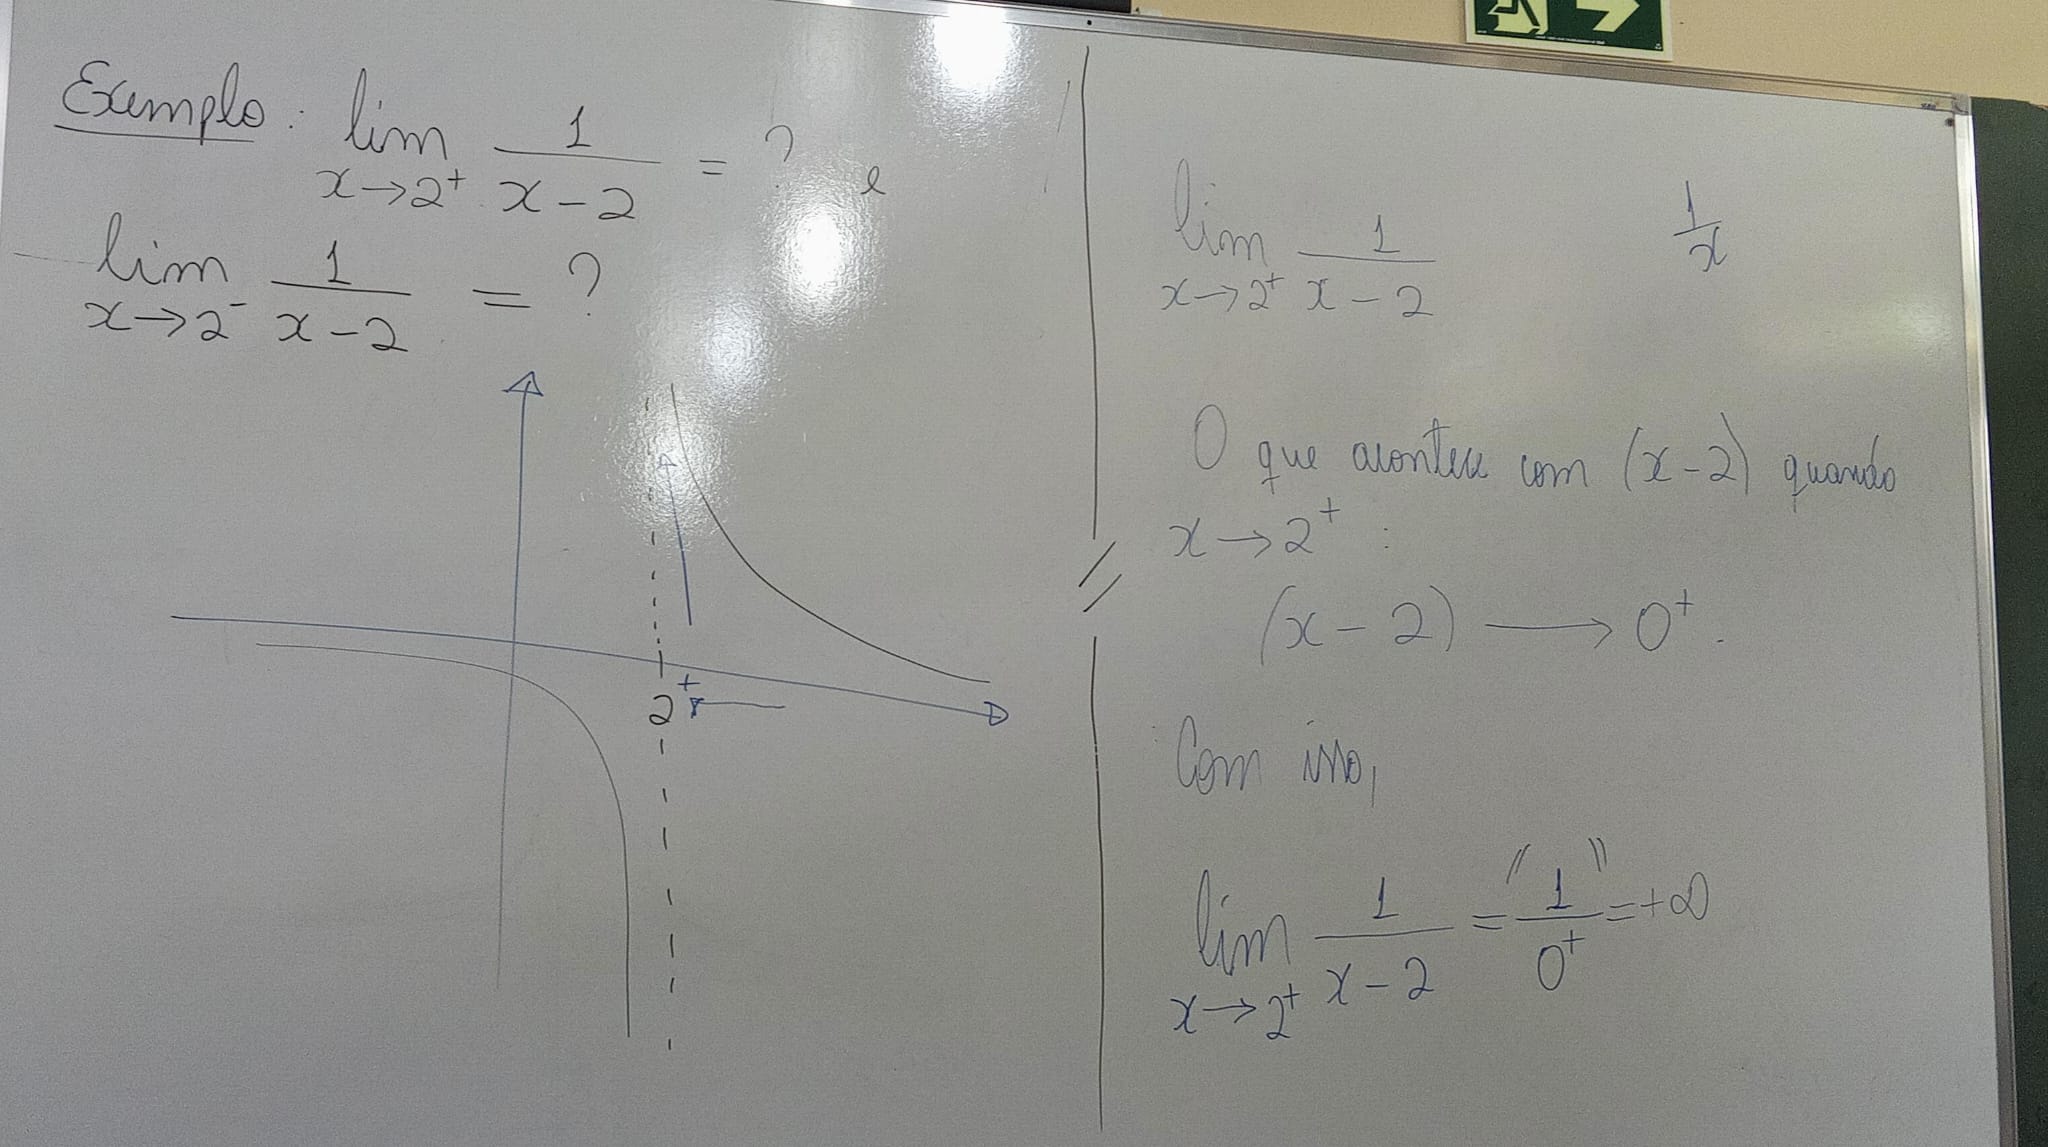 Exemplo: lim x→2⁺ 1/(x-2) = ? e
lim x→2⁻ 1/(x-2) = ?
2⁺
lim x→2⁺ 1/(x-2)
1/x
O que acontece com (x-2) quando
x→2⁺ :
(x-2) ⟶ 0⁺.
Com isso,
lim x→2⁺ 1/(x-2) = "1/0⁺" = +∞